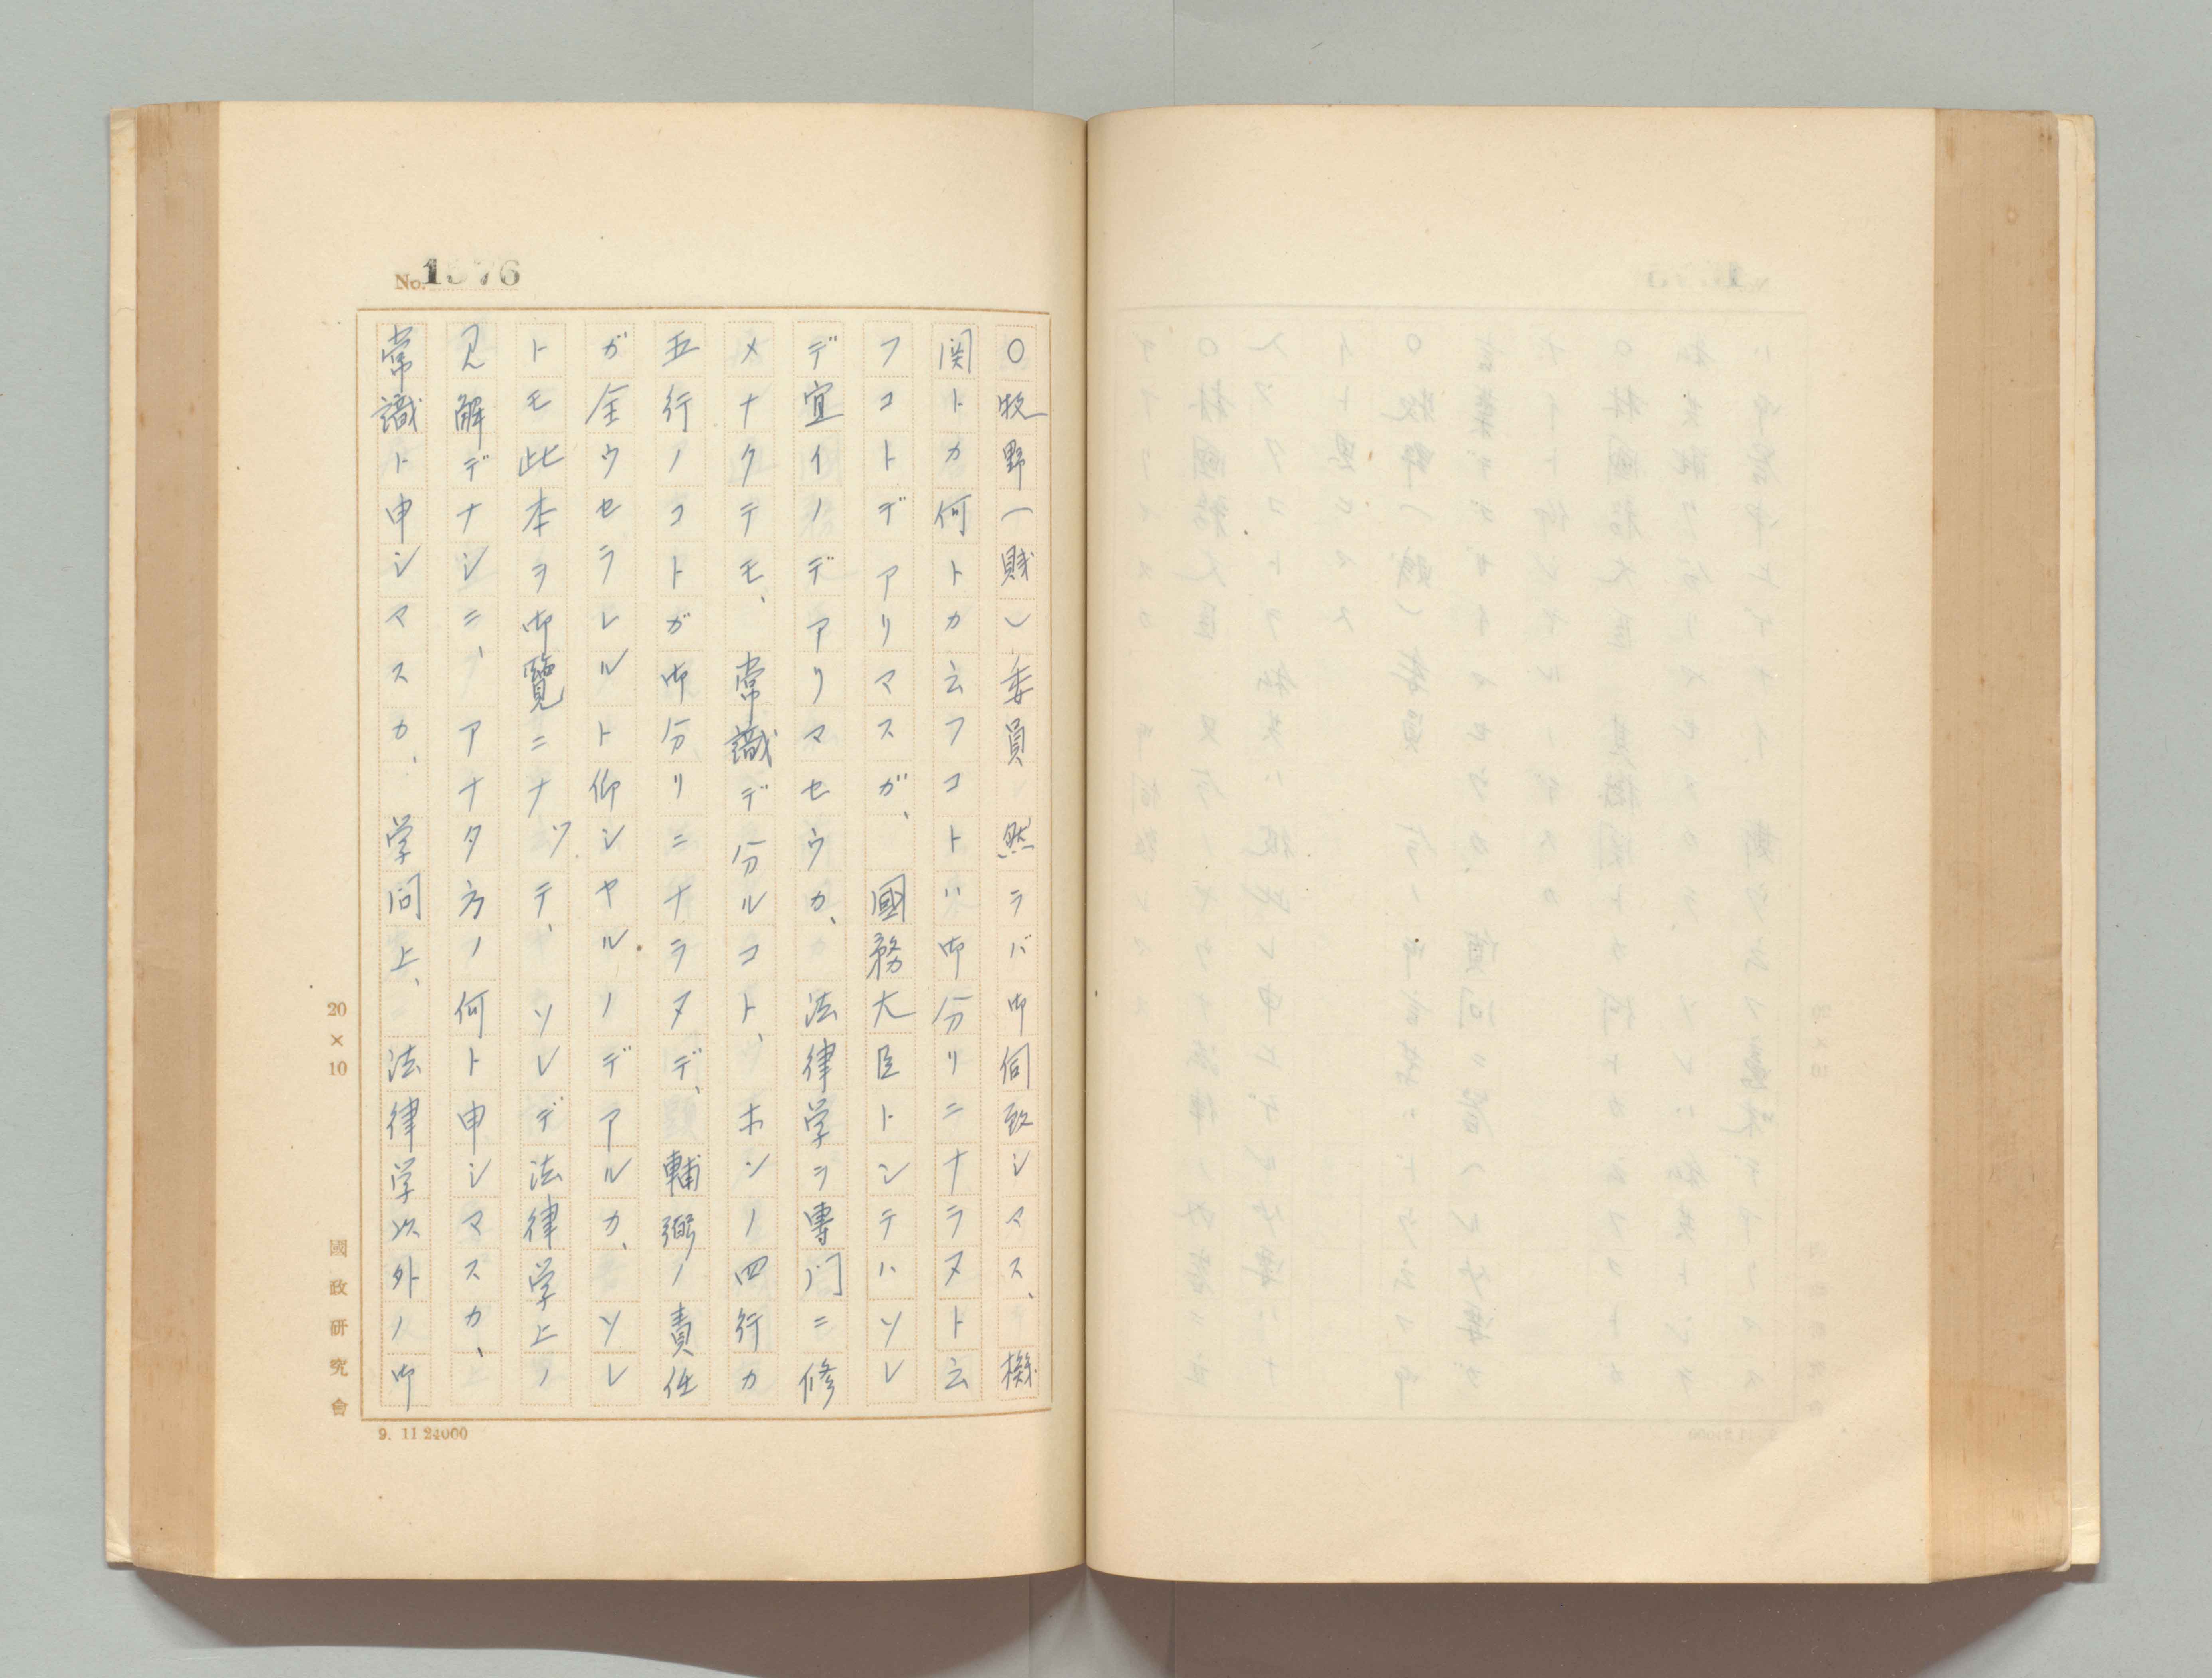 No. 1576
〇牧野(賤)委員 然ラバ御伺致シマス、機
関トカ何トカ云フコトハ御分リニナラヌト云
フコトデアリマスガ、國務大臣トシテハソレ
デ宜イノデアリマセウカ、法律学ヲ專門ニ修
メナクテモ、常識デ分ルコト、ホンノ四行カ
五行ノコトガ御分リニナラヌデ、輔弼ノ責任
ガ全ウセラレルト仰シヤルノデアルカ、ソレ
トモ此本ヲ御覽ニナツテ、ソレデ法律学上ノ
見解デナシニ、アナタ方ノ何ト申シマスカ、
常識ト申シマスカ、学問上、法律学以外ノ御
20×10
國政研究會
9. 11.24000